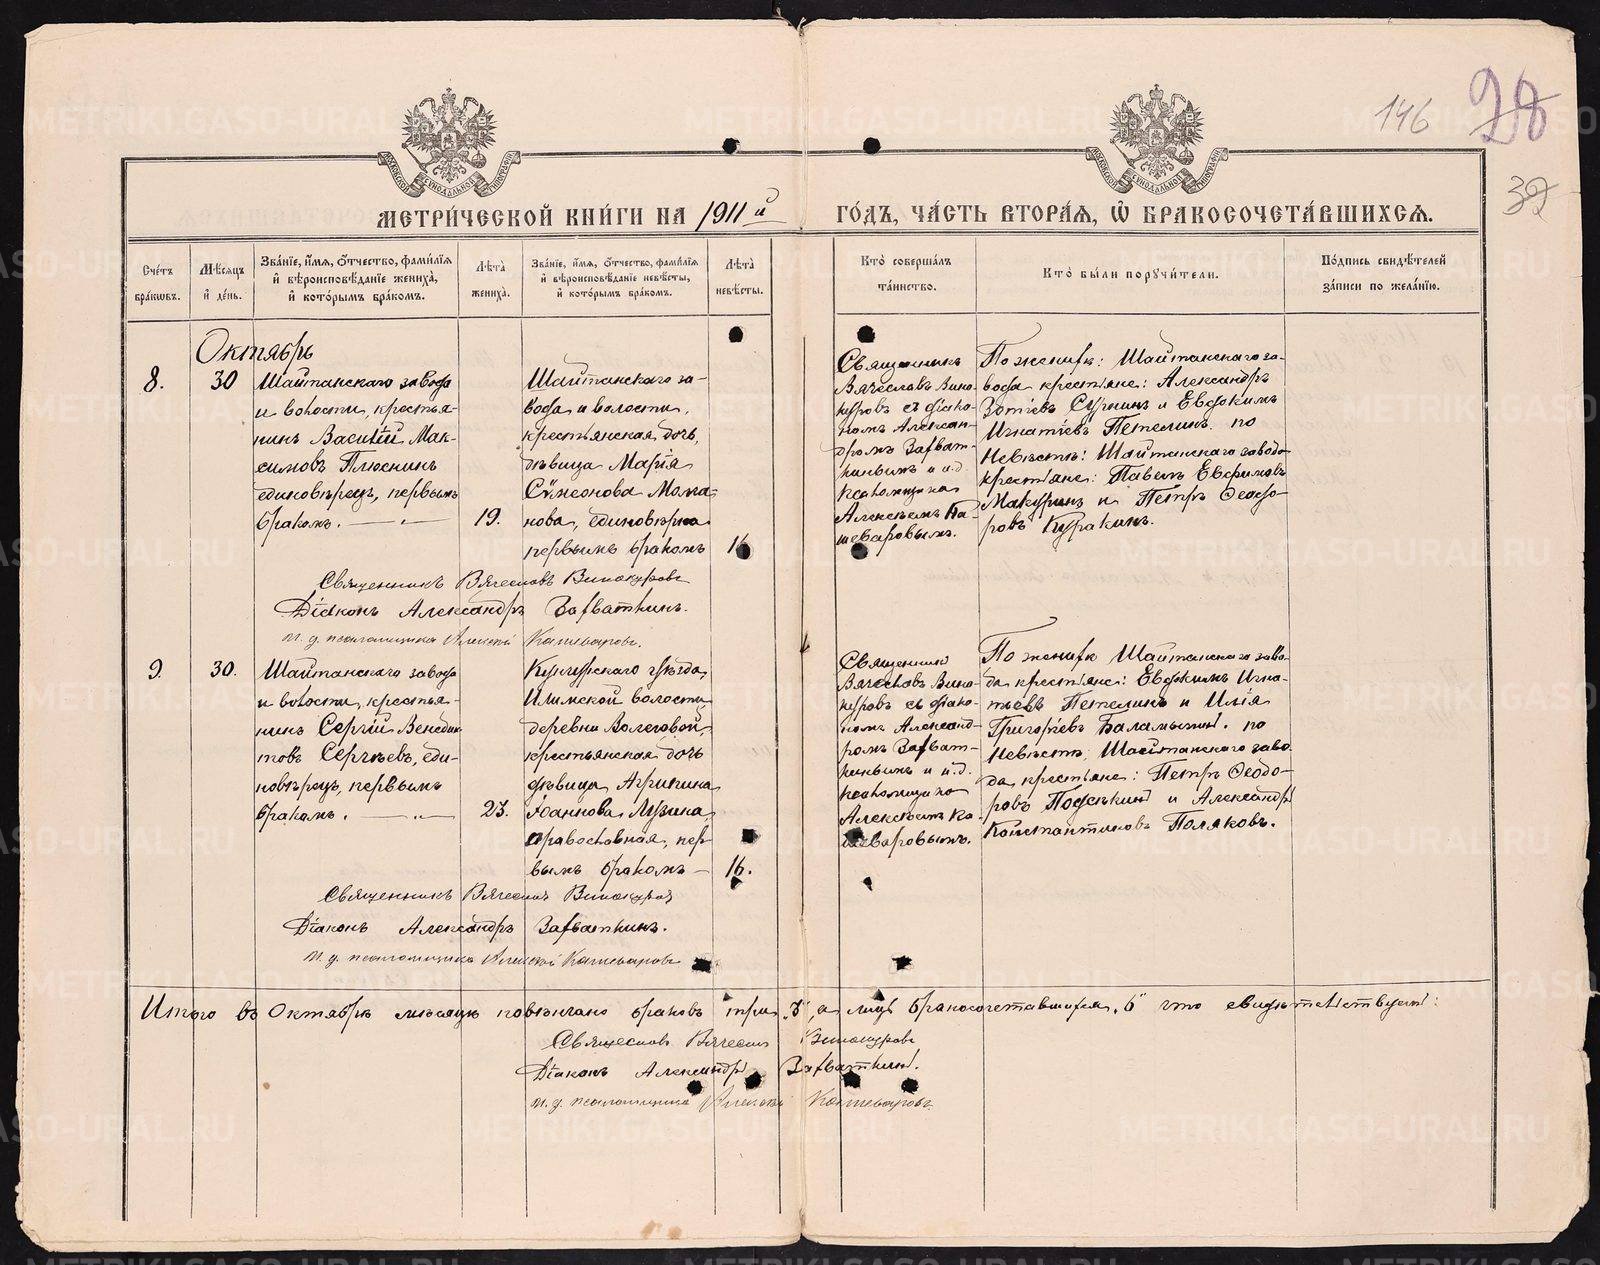 146 28
32
МОСКОВСКОЙ СѴНОДАЛЬНОЙ ТИПОГРАФІИ
МОСКОВСКОЙ СѴНОДАЛЬНОЙ ТИПОГРАФІИ
МЕТРИ́ЧЕСКОЙ КНИ́ГИ НА 1911 й ГО́ДЪ, ЧА́СТЬ ВТОРА́Ѧ, Ѿ БРАКОСОЧЕТА́ВШИХСѦ.
Сче́тъ бра́кѡвъ.
Мѣ́сѧцъ и҆ де́нь.
Зва́нїе, и҆́мѧ, ѻ҆́тчество, фами́лїѧ и҆ вѣроисповѣ́данїе жениха̀, и҆ кото́рымъ бра́комъ.
Лѣта̀ жениха̀.
Зва́нїе, и҆́мѧ, ѻ҆́тчество, фами́лїѧ и҆ вѣроисповѣ́данїе невѣ́сты, и҆ кото́рымъ бра́комъ.
Лѣта̀ невѣ́сты.
Кто̀ соверша́лъ та́инство.
Кто̀ бы́ли порꙋчи́тели.
По́дпись свидѣ́телей за́писи по жела́нїю.
Октябрь
8.
30
Шайтанскаго завода
и волости, крестья-
нинъ Василій Мак-
симовъ Плюснинъ
единовѣрецъ, первымъ
бракомъ. — „ —
19.
Шайтанскаго за-
вода и волости,
крестьянская дочь,
дѣвица Марія
Сѵмеонова Мома-
нова, единовѣрка
первымъ бракомъ
16
Священникъ
Вячеславъ Вино-
куровъ съ діако-
номъ Алексан-
дромъ Зафват-
кинымъ и и.д.
псаломщика
Алексѣемъ Ка-
шеваровымъ.
По женихѣ: Шайтанскаго за-
вода крестьяне: Александръ
Зотіевъ Сурнинъ и Евфимъ
Игнатіевъ Петелинъ. по
невѣстѣ: Шайтанскаго завода
крестьяне: Павелъ Евфимовъ
Макуринъ и Петръ Ѳеодо-
ровъ Куракинъ.
Священникъ Вячеславъ Винокуровъ
Діаконъ Александръ Зафваткинъ.
И. д. псаломщика Алексѣй Кашеваровъ.
9.
30.
Шайтанскаго завода
и волости, крестья-
нинъ Сергій Венедик-
товъ Сергѣевъ, еди-
новѣрецъ, первымъ
бракомъ. — „ —
23.
Кунгурскаго уѣзда,
Илимской волости
деревни Волеговой,
крестьянская дочь
дѣвица Агрипина
Іоаннова Лузина,
православная, пер-
вымъ бракомъ —
16.
Священникъ
Вячеславъ Вино-
куровъ съ діако-
номъ Александ-
ромъ Зафват-
кинымъ и и.д.
псаломщика
Алексѣемъ Ка-
шеваровымъ.
По женихѣ Шайтанскаго заво-
да крестьяне: Евфимъ Игна-
тьевъ Петелинъ и Илія
Григорьевъ Баламытинъ. по
невѣстѣ, Шайтанскаго заво-
да крестьяне: Петръ Ѳеодо-
ровъ Подсѣкинъ и Александръ
Константиновъ Поляковъ.
Священникъ Вячеславъ Винокуровъ
Діаконъ Александръ Зафваткинъ.
И. д. псаломщика Алексѣй Кашеваровъ
Итого въ Октябрѣ мѣсяцѣ повѣнчано браковъ три „3", а лицъ бракосочетавшихся „6" что свидѣтельствуемъ:
Вячеславъ Винокуровъ
Діаконъ Александръ Зафваткинъ.
И. д. псаломщика Алексѣй Кашеваровъ
METRIKI.GASO-URAL.RU